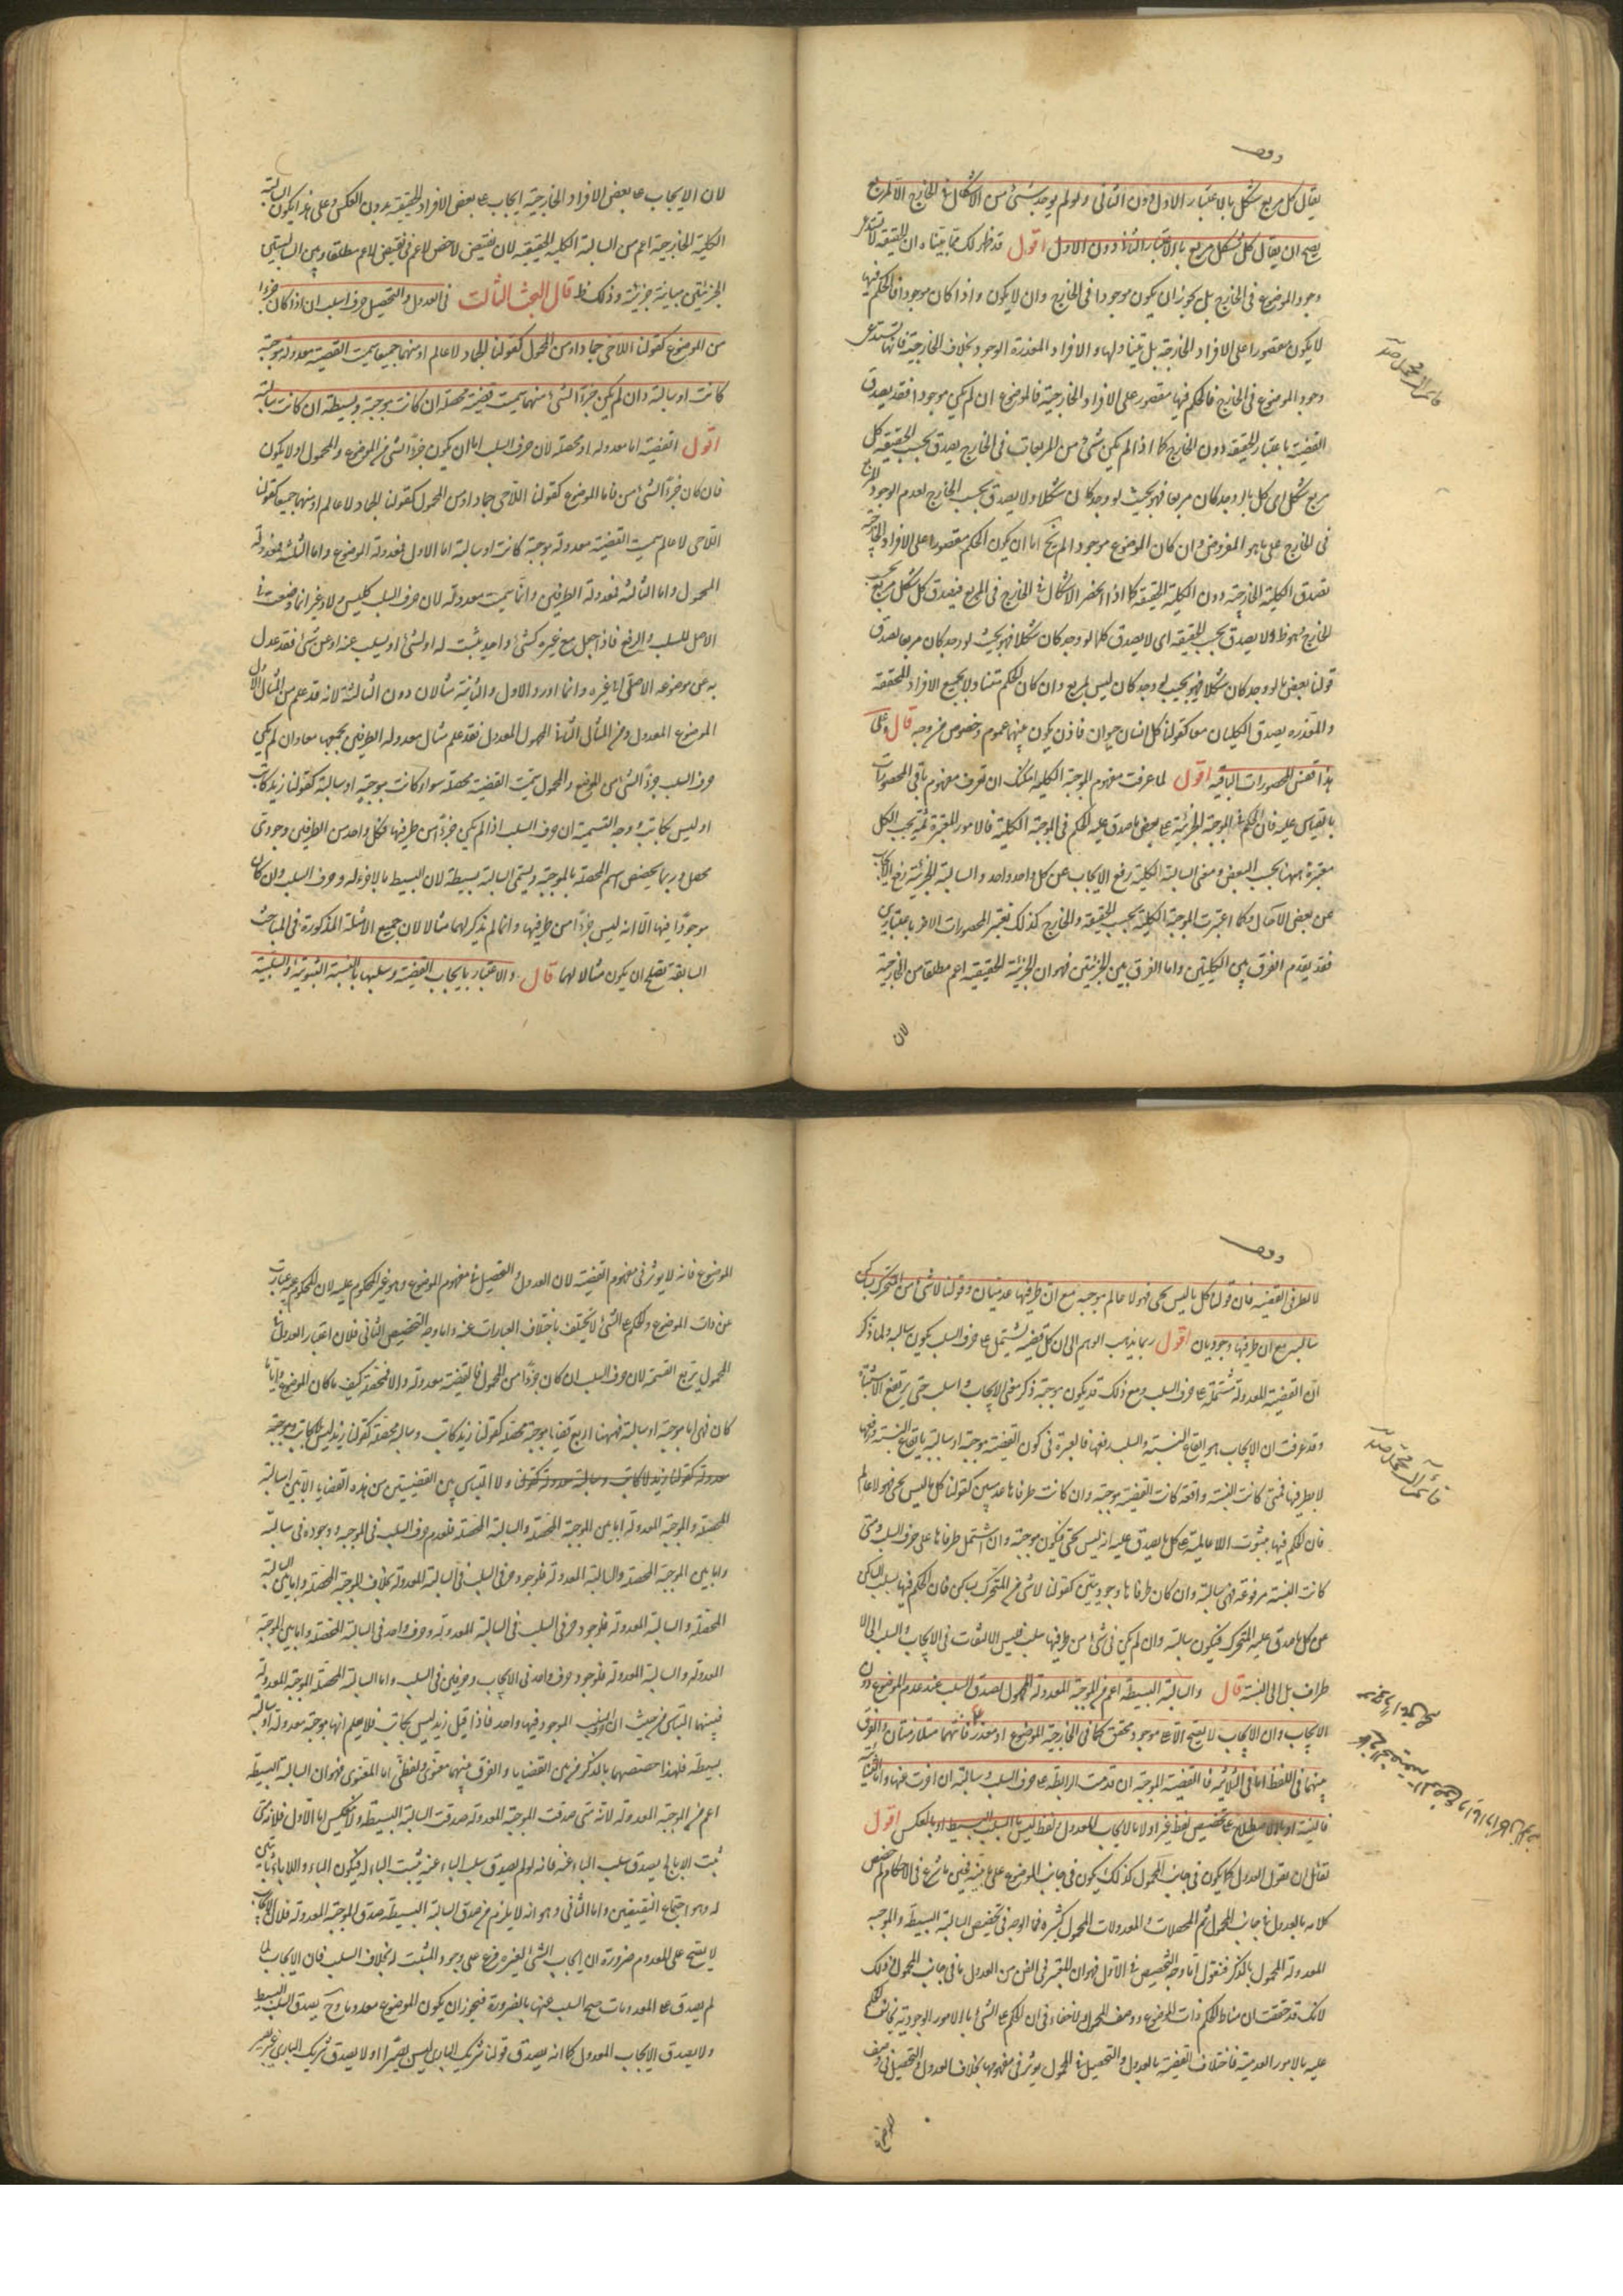 يقال كل مربع شكل بالاعتبار الاول دون الثاني ولو لم يوجد شئ من الاشكال في الخارج الا المربع
يصح ان يقال كل شكل مربع بالاعتبار الثاني دون الاول اقول قد ظهر لك مما بيناه ان الحقيقية لا تستدعي
وجود الموضوع في الخارج بل يجوز ان يكون موجودا في الخارج وان لا يكون واذا كان موجودا فالحكم فيها
لا يكون مقصورا على الافراد الخارجية بل يتناولها والافراد المقدرة الوجود بخلاف الخارجية فانها تستدعي
وجود الموضوع في الخارج فالحكم فيها مقصور على الافراد الخارجية فالموضوع ان لم يكن موجودا فقد يصدق
القضية باعتبار الحقيقة دون الخارج كما اذا لم يكن شئ من المربعات في الخارج يصدق بحسب الحقيقة كل
مربع شكل اي كل ما لو وجد كان مربعا فهو بحيث لو وجد كان شكلا ولا يصدق بحسب الخارج لعدم الوجود المربع
في الخارج على ما هو المفروض وان كان الموضوع موجودا لم يخ اما ان يكون الحكم مقصورا على الافراد الخارجية
تصدق الكلية الخارجية دون الكلية الحقيقية كما اذا انحصر الاشكال في الخارج في المربع فيصدق كل شكل مربع بحسب
الخارج وهو ظ ولا يصدق بحسب الحقيقة اي لا يصدق كلما لو وجد كان شكلا فهو بحيث لو وجد كان مربعا لصدق
قولنا بعض ما لو وجد كان شكلا فهو بحيث لو وجد كان ليس بمربع وان كان الحكم متناولا بجميع الافراد المحققة
والمقدرة يصدق الكليتان معا كقولنا كل انسان حيوان فاذن يكون بينهما عموم وخصوص من وجه قال وعلى
هذا فقس المحصورات الباقية اقول لما عرفت مفهوم الموجبة الكلية امكنك ان تعرف مفهوم باقي المحصورات
بالقياس عليه فان الحكم في الموجبة الجزئية على بعض ما صدق عليه الحكم في الموجبة الكلية فالامور المعتبرة ثمة بحسب الكل
معتبرة ههنا بحسب البعض ومعنى السالبة الكلية رفع الايجاب عن كل واحد واحد والسالبة الجزئية رفع الايجاب
عن بعض الآحاد وكما اعتبرت الموجبة الكلية بحسب الحقيقة والخارج كذلك تعتبر المحصورات الاخر باعتبارين
فقد تقدم الفرق بين الكليتين واما الفرق بين الجزئيتين فهو ان الجزئية الحقيقية اعم مطلقا من الخارجية
لان
لان الايجاب على بعض الافراد الخارجية ايجاب على بعض الافراد الحقيقية بدون العكس وعلى هذا يكون السالبة
الكلية الخارجية اعم من السالبة الكلية الحقيقية لان نقيض الاخص اعم من نقيض الاعم مطلقا وبين السالبتين
الجزئيتين مباينة جزئية وذلك ظ قال البحث الثالث في العدول والتحصيل حرف السلب ان اذا كان جزءا
من الموضوع كقولنا اللاحي جماد او من المحمول كقولنا الجماد لا عالم او منهما جميعا سميت القضية معدولة موجبة
كانت او سالبة وان لم يكن جزءا لشئ منهما سميت قضية محصلة ان كانت موجبة وبسيطة ان كانت سالبة
اقول القضية اما معدولة او محصلة لان حرف السلب اما ان يكون جزءا لشئ من الموضوع والمحمول او لا يكون
فان كان جزءا لشئ من فاما الموضوع كقولنا اللاحي جماد او من المحمول كقولنا الجماد لا عالم او منهما جميعا كقولنا
اللاحي لا عالم سميت القضية معدولة موجبة كانت او سالبة اما الاول فمعدولة الموضوع واما الثانية فمعدولة
المحمول واما الثالثة فمعدولة الطرفين وانما سميت معدولة لان حرف السلب كليس ولا وغير انما وضعت في
الاصل للسلب والرفع فاذا جعل مع غيره كشئ واحد يثبت له او لشئ او يسلب عنه او عن شئ فقد عدل
به عن موضوعه الاصلي الى غيره وانما اورد للاول والثانية مثالان دون الثالثة لانه قد علم من المثال الاول
الموضوع المعدول ومن المثال الثاني المحمول المعدول فقد علم مثال معدولة الطرفين بجمعهما معا وان لم يكن
حرف السلب جزءا لشئ من الموضوع والمحمول سميت القضية محصلة سواء كانت موجبة او سالبة كقولنا زيد كاتب
او ليس بكاتب وجه التسمية ان حرف السلب اذا لم يكن جزءا من طرفيها فكل واحد من الطرفين وجودي
محصل وربما يخصص اسم المحصلة بالموجبة وتسمى السالبة بسيطة لان البسيط ما لا جزء له وحرف السلب وان كان
موجودا فيها الا انه ليس جزءا من طرفيها وانما لم يذكر لهما مثالا لان جميع الامثلة المذكورة في المباحث
السابقة تصلح ان يكون مثالا لهما قال والاعتبار بايجاب القضية وسلبها بالنسبة الثبوتية والسلبية
لا بطرفي القضية فان قولنا كل ما ليس بحي فهو لا عالم موجبة مع ان طرفيها عدميان وقولنا لا شئ من المتحرك بساكن
سالبة مع ان طرفيها وجوديان اقول ربما يذهب الوهم الى ان كل قضية تشتمل على حرف السلب يكون سالبة ولما ذكر
ان القضية المعدولة مشتملة على حرف السلب ومع ذلك قد يكون موجبة ذكر معنى الايجاب والسلب حتى يرتفع الاشتباه
وقد عرفت ان الايجاب هو ايقاع النسبة والسلب رفعها فالعبرة في كون القضية موجبة او سالبة بايقاع النسبة ورفعها
لا بطرفيها فمتى كانت النسبة واقعة كانت القضية موجبة وان كانت طرفاها عدميين كقولنا كل ما ليس بحي فهو لا عالم
فان الحكم فيها بثبوت اللاعالمية على كل ما يصدق عليه انه ليس بحي فيكون موجبة وان اشتمل طرفاها على حرف السلب ومتى
كانت النسبة مرفوعة فهي سالبة وان كان طرفاها وجوديتين كقولنا لا شئ من المتحرك بساكن فان الحكم فيها بسلب الساكن
عن كل ما صدق عليه المتحرك فيكون سالبة وان لم يكن في شئ من طرفيها سلب فليس الالتفات في الايجاب والسلب الى الا
طراف بل الى النسبة قال والسالبة البسيطة اعم من الموجبة المعدولة المحمول لصدق السلب عند عدم الموضوع دون
الايجاب وان الايجاب لا يصح الا على موجود محقق كما في الخارجية الموضوع او مقدر فانهما متلازمتان والفرق
بينهما في اللفظ اما في الثلاثية فالقضية الموجبة ان قدمت الرابطة على حرف السلب وسالبة ان اخرت عنها واما الثنائية
فالنية او بالاصطلاح على تخصيص لفظ غير او لا بالايجاب المعدول ولفظ ليس بالسلب البسيط او بالعكس اقول
لقائل ان يقول العدول كما يكون في جانب المحمول كذلك يكون في جانب الموضوع على ما بينه فحين ما شرع في الاحكام لم خصص
كلامه بالعدول في جانب المحمول ثم المحصلات والمعدولات المحمول كثيرة فما الوجه في تخصيص السالبة البسيطة والموجبة
المعدولة المحمول بالذكر فنقول اما وجه التخصيص في الاول فهو ان المعتبر في الفن من العدول ما في جانب المحمول وذلك
لانك قد حققت ان مناط الحكم ذات الموضوع ووصف المحمول ولا خفاء في ان الحكم على الشئ بالامور الوجودية يخالف الحكم
عليه بالامور العدمية فاختلاف القضية بالعدول والتحصيل في المحمول يؤثر في مفهومها بخلاف العدول والتحصيل في وصف
الموضوع
الموضوع فانه لا يؤثر في مفهوم القضية لان العدول والتحصيل في مفهوم الموضوع وهو غير المحكوم عليه لان المحكوم عليه عبارت
عن ذات الموضوع والحكم على الشئ لا يختلف باختلاف العبارات عنه واما وجه التخصيص الثاني فلان اعتبار العدول في
المحمول يربع القسمة لان حرف السلب ان كان جزءا من المحمول فالقضية معدولة والا فمحصلة كيف ما كان الموضوع وايا ما
كان فهي اما موجبة او سالبة فههنا اربع قضايا موجبة محصلة كقولنا زيد كاتب وسالبة محصلة كقولنا زيد ليس بكاتب وموجبة
معدولة كقولنا زيد لا كاتب وسالبة معدولة كقولنا ولا التباس بين القضيتين من هذه القضايا الا بين السالبة
المحصلة والموجبة المعدولة اما بين الموجبة المحصلة والسالبة المحصلة فلعدم حرف السلب في الموجبة ووجوده في سالبة
واما بين الموجبة المحصلة والسالبة المعدولة فلوجود حرفي السلب في السالبة المعدولة بخلاف الموجبة المحصلة واما بين السالبة
المحصلة والسالبة المعدولة فلوجود حرفي السلب في السالبة المعدولة وحرف واحد في السالبة المحصلة واما بين الموجبة
المعدولة والسالبة المعدولة فلوجود حرف واحد في الايجاب وحرفين في السلب واما السالبة المحصلة الموجبة المعدولة
فبينهما التباس من حيث ان حرف السلب الموجود فيها واحد فاذا قيل زيد ليس بكاتب فلا يعلم انها موجبة معدولة او سالبة
بسيطة فلهذا خصصهما بالذكر من بين القضايا والفرق بينهما معنوي ولفظي اما المعنوي فهو ان السالبة البسيطة
اعم من الموجبة المعدولة لانه متى صدقت الموجبة المعدولة صدقت السالبة البسيطة ولا ينعكس اما الاول فلانه متى
ثبت اللاباء لج يصدق سلب الباء عنه فانه لو لم يصدق سلب الباء عنه يثبت الباء له فيكون الباء واللاباء ثابتين
له وهو اجتماع النقيضين واما الثاني وهو انه لا يلزم من صدق السالبة البسيطة صدق الموجبة المعدولة فلان الايجاب
لا يصح على المعدوم ضرورة ان ايجاب الشئ لغيره فرع على وجود المثبت له بخلاف السلب فان الايجاب لما
لم يصدق على المعدومات صح السلب عنها بالضرورة فيجوز ان يكون الموضوع معدوما وح يصدق السلب البسيط
ولا يصدق الايجاب المعدول كما انه يصدق قولنا شريك الباري ليس ببصير ولا يصدق شريك الباري غير بصير